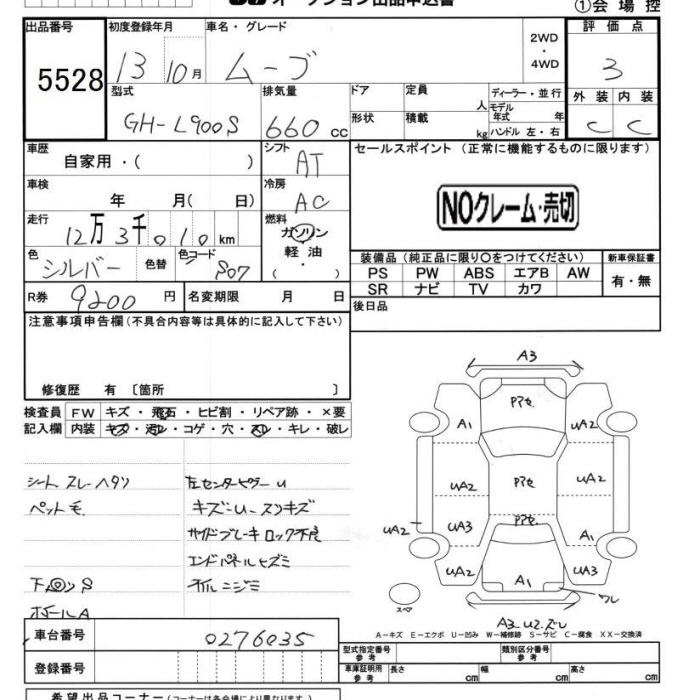 オークション出品申込書
①会場控
出品番号 初度登録年月 車名・グレード 2WD・4WD 評価点
5528 13 10月 ムーブ 3
型式 排気量 ドア 定員 人 ディーラー・並行 外装 内装
GH-L900S 660cc 形状 積載 kg モデル年式 年 C C
ハンドル 左・右
車歴 自家用・( ) シフト AT セールスポイント (正常に機能するものに限ります)
車検 年 月( 日) 冷房 AC
NOクレーム・売切
走行 12万3千010km 燃料 ガソリン
色 シルバー 色替 色コード S07 軽油 ( ・ )
装備品(純正品に限り○をつけてください) 新車保証書
PS PW ABS エアB AW 有・無
SR ナビ TV カワ
R券 9200円 名変期限 月 日 後日品
注意事項申告欄(不具合内容等は具体的に記入して下さい)
修復歴 有〔箇所 〕
検査員 FW キズ・飛石・ヒビ割・リペア跡・×要
記入欄 内装 キズ・汚レ・コゲ・穴・スレ・キレ・破レ
シート スレ ヘタリ 左センターピラー U
ペット毛 キズ・U・スリキズ
サイドブレーキ ロック不良
エンドパネル ヒズミ
下廻リ S オイルニジミ
ボールA
A3
アアセ
A1 UA2
UA2 アアセ UA2
UA2 UA3 アアセ A1
UA2 A1 UA3
ワレ
スペア
A3 U2 ズレ
A-キズ E-エクボ U-凹み W-補修跡 S-サビ C-腐食 XX-交換済
車台番号 0276035 型式指定番号 参考 類別区分番号 参考
登録番号 車庫証明用 参考 長さ cm 幅 cm 高さ cm
希望出品コーナー(コーナーは各会場により異なります。)